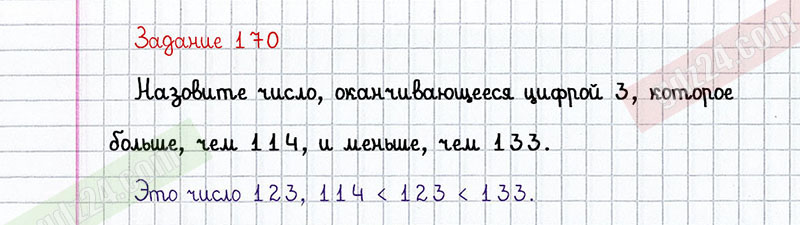 Задание 170
Назовите число, оканчивающееся цифрой 3, которое
больше, чем 114, и меньше, чем 133.
Это число 123, 114 < 123 < 133.
gdz24.com
gdz24.com